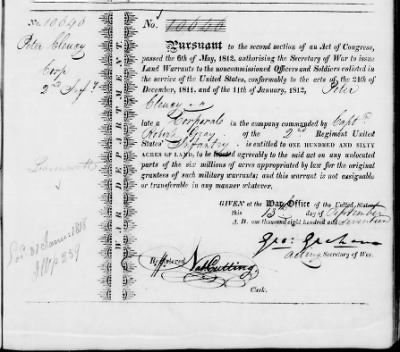 No 10640
Peter Clency
Corp
2nd Inf.y
WAR DEPARTMENT.
No. 10640
Pursuant to the second section of an Act of Congress,
passed the 6th of May, 1812, authorising the Secretary of War to issue
Land Warrants to the noncommissioned Officers and Soldiers enlisted in
the service of the United States, conformably to the acts of the 24th of
December, 1811, and of the 11th of January, 1812, Peter
Clency
late a Corporal in the company commanded by Capt.n
Robert Gray of the 2nd Regiment United
States' Infantry is entitled to ONE HUNDRED AND SIXTY
ACRES OF LAND, to be located agreeably to the said act on any unlocated
parts of the six millions of acres appropriated by law for the original
grantees of such military warrants; and this warrant is not assignable
or transferable in any manner whatever.
GIVEN at the War Office of the United States
this 13th day of September
A. D. one thousand eight hundred and seventeen
Geo: Graham
acting Secretary of War.
Registered Nat Cutting
Clerk.